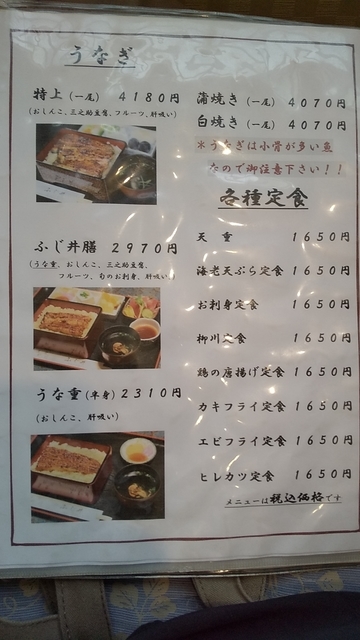 うなぎ
特上(一尾) 4180円
(おしんこ、三之助豆腐、フルーツ、肝吸い)
ふじ丼膳 2970円
(うな重、おしんこ、三之助豆腐、
フルーツ、旬のお刺身、肝吸い)
うな重(半身) 2310円
(おしんこ、肝吸い)
蒲焼き(一尾) 4070円
白焼き(一尾) 4070円
※うなぎは小骨が多い魚
なので御注意下さい!!
各種定食
天重 1650円
海老天ぷら定食 1650円
お刺身定食 1650円
柳川定食 1650円
鶏の唐揚げ定食 1650円
カキフライ定食 1650円
エビフライ定食 1650円
ヒレカツ定食 1650円
メニューは税込価格です